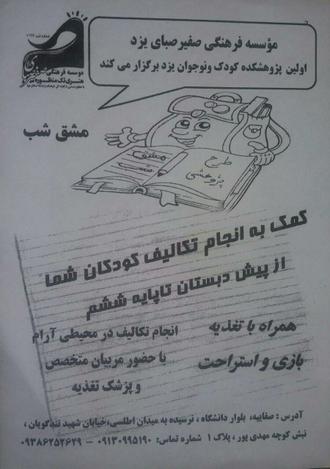 مؤسسه فرهنگی صفیر صبای یزد
اولین پژوهشکده کودک ونوجوان یزد برگزار می کند
موسسه فرهنگی
مشق شب
طرح
پژوهشی
مشق
کمک به انجام تکالیف کودکان شما
از پیش دبستان تاپایه ششم
همراه با تغذیه
بازی و استراحت
انجام تکالیف در محیطی آرام
با حضور مربیان متخصص
و پزشک تغذیه
آدرس : صفاییه، بلوار دانشگاه ، نرسیده به میدان اطلسی،خیابان شهید تندگویان ،
نبش کوچه مهدی پور ، پلاک ۱ شماره تماس: ۰۹۱۳۰۹۹۵۱۹۰ – ۰۹۳۸۶۲۵۲۶۲۹